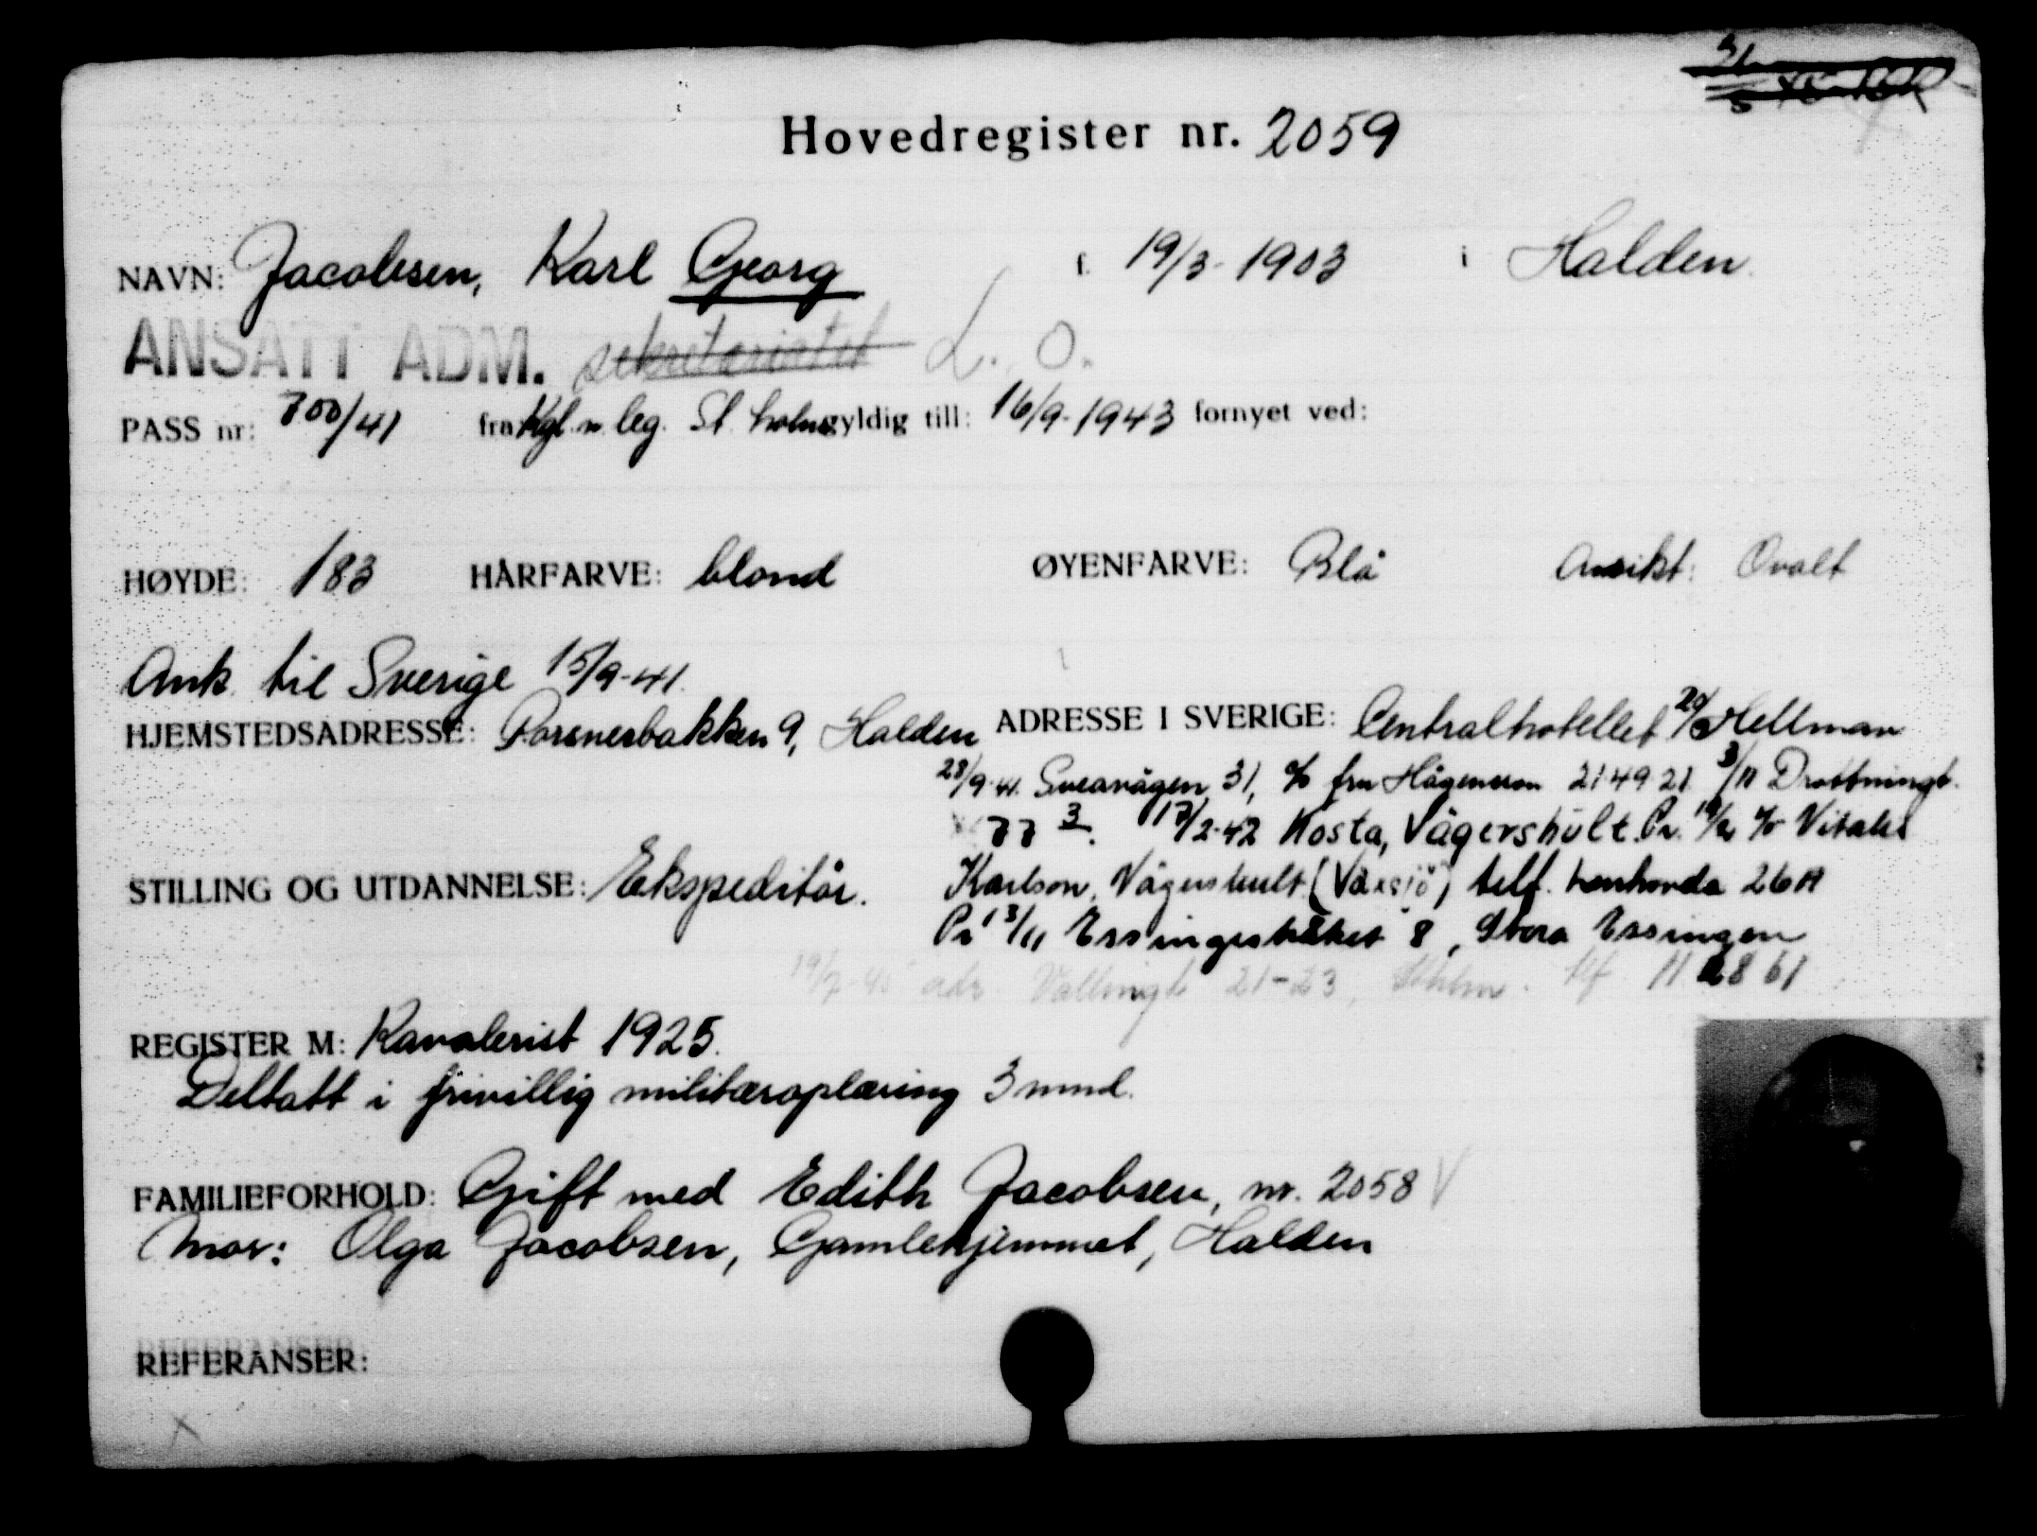 Hovedregister nr. 2059
NAVN: Jacobsen, Karl Georg f. 19/3-1903 i Halden
ANSATT ADM. sekretariatet L.O.
PASS nr: 700/41 fra Kgl. n. leg. St. holm gyldig till: 16/9-1943 fornyet ved:
HØYDE: 183 HÅRFARVE: blond ØYENFARVE: Blå Ansikt: Ovalt
Ank. til Sverige 15/9-41.
HJEMSTEDSADRESSE: Porsnesbakken 9, Halden
ADRESSE I SVERIGE: Centralhotellet Hellman
28/9-41. Sveavägen 31, c/o fru Hågensson 214921 3/11 Drottningt.
77 3. 17/2-42 Kosta, Vägershult. Pr. c/o Vitalis
STILLING OG UTDANNELSE: Ekspeditør.
Karlson, Vägershult (Växsjö) telf. Lenhovda 26A
Pr 13/11 Essingestråket 8, Stora Essingen
adr. Vallingt 21-23, Sthlm. tlf 112861
REGISTER M: Kavalerist 1925.
Deltatt i frivillig militæroplæring 3 mnd.
FAMILIEFORHOLD: Gift med Edith Jacobsen, nr. 2058 V
Mor: Olga Jacobsen, Gamlehjemmet, Halden
REFERANSER:
X